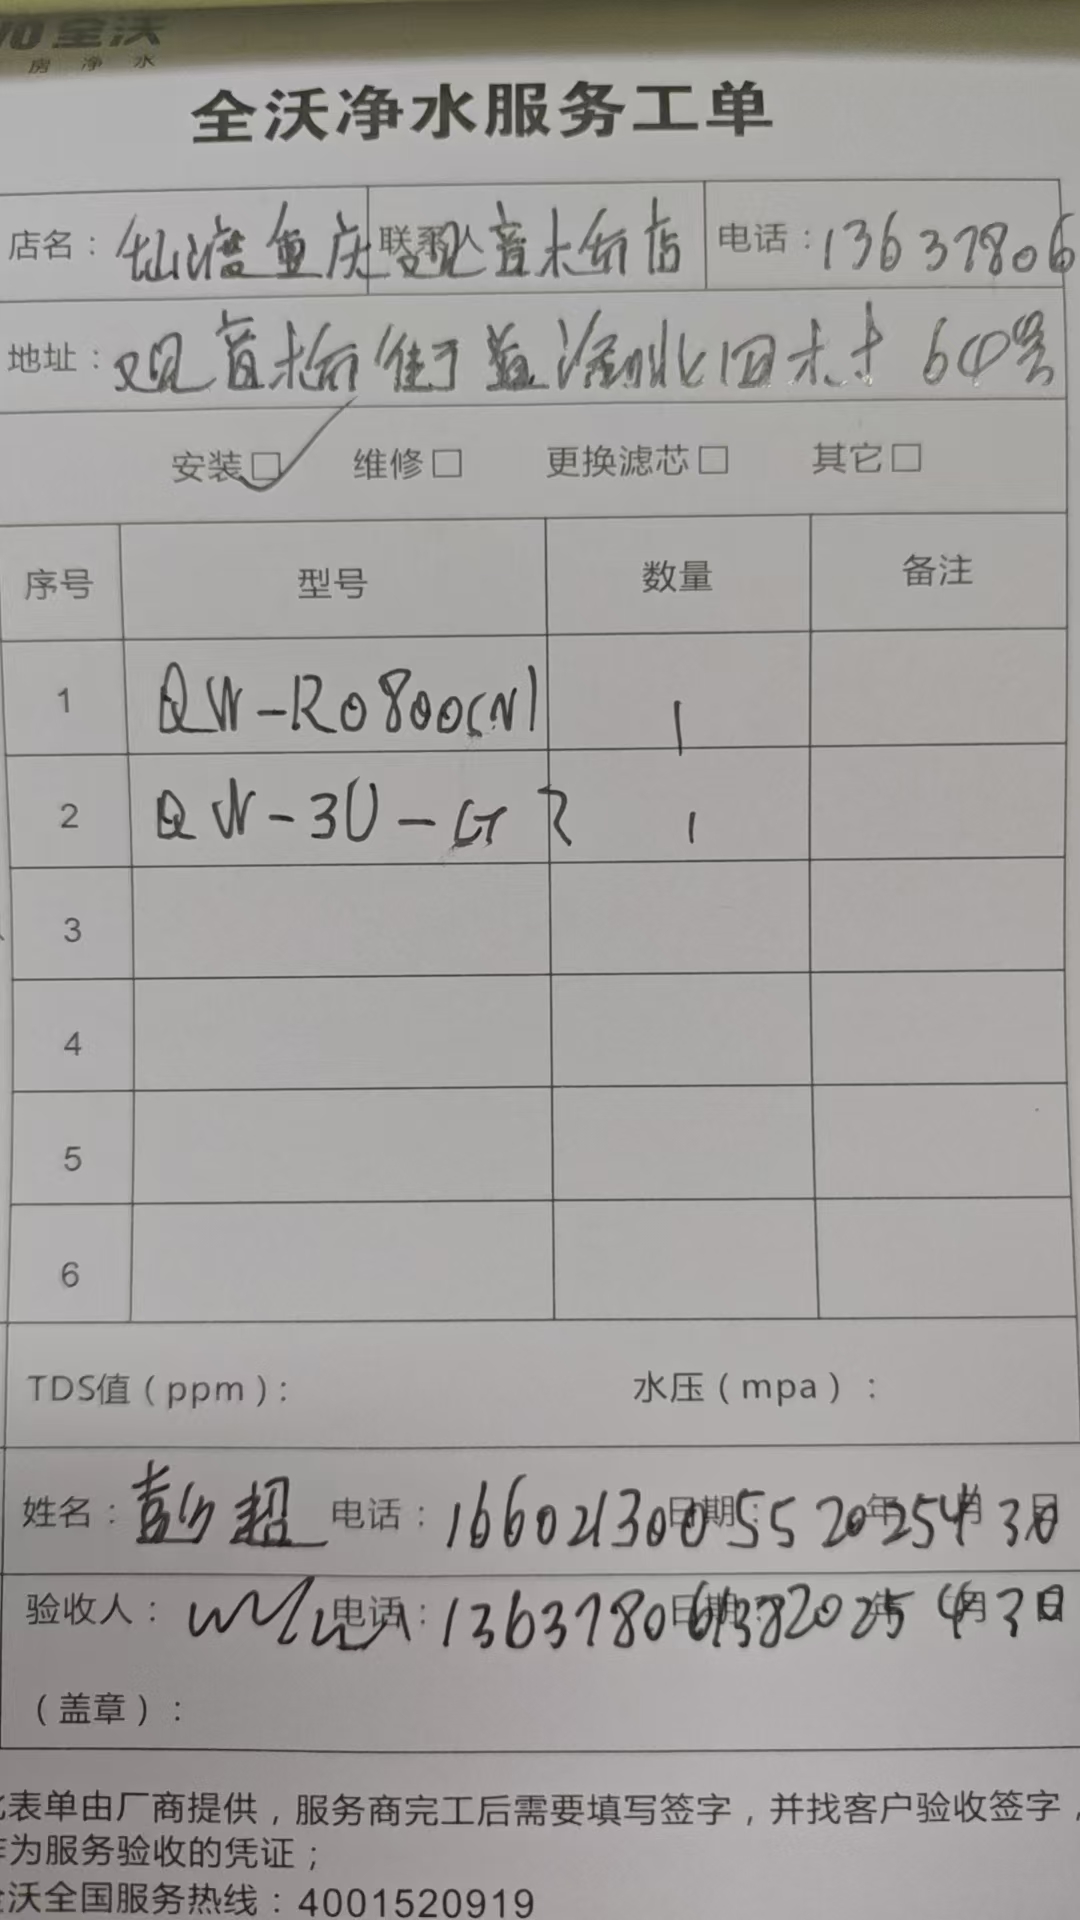 全沃
房净水
全沃净水服务工单
店名： 渔庆 联系人 观音桥店 电话：13637806
地址：观音桥街 北四村 60号
安装☑ 维修□ 更换滤芯□ 其它□
序号 型号 数量 备注
1 QW-RO800(N) 1
2 QW-3U-GR 1
3
4
5
6
TDS值（ppm）： 水压（mpa）：
姓名：彭超 电话：16602130055 日期：2025年4月30日
验收人： 电话：13637806138 日期：2025年4月30日
（盖章）：
表单由厂商提供，服务商完工后需要填写签字，并找客户验收签字，
为服务验收的凭证；
沃全国服务热线：4001520919